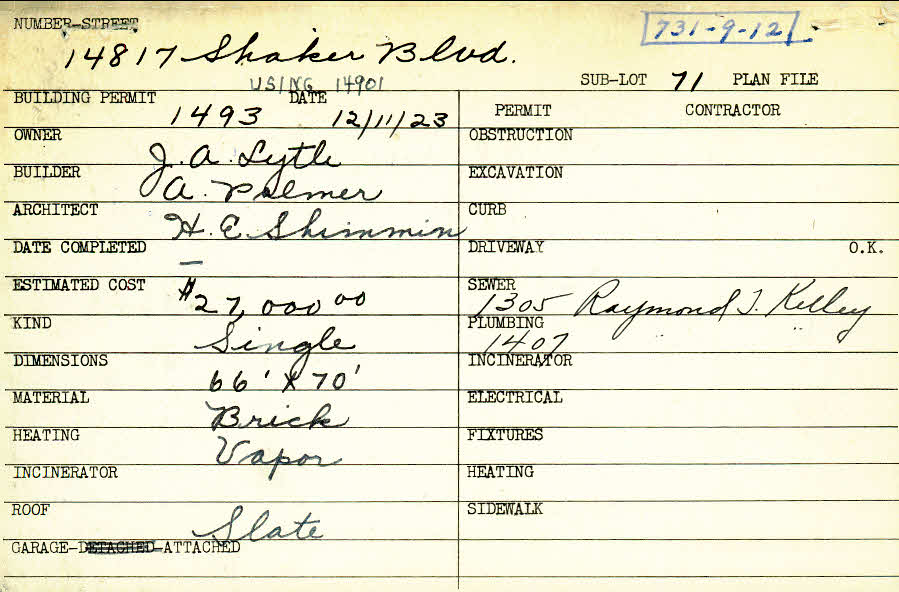 NUMBER-STREET 731-9-12
14817 Shaker Blvd.
USING 14901
SUB-LOT 71 PLAN FILE
BUILDING PERMIT 1493 DATE 12/11/23
OWNER J. A. Lytle
BUILDER A. Palmer
ARCHITECT H. E. Shimmin
DATE COMPLETED —
ESTIMATED COST $27,000.00
KIND Single
DIMENSIONS 66' X 70'
MATERIAL Brick
HEATING Vapor
INCINERATOR
ROOF Slate
GARAGE-DETACHED-ATTACHED
PERMIT CONTRACTOR
OBSTRUCTION
EXCAVATION
CURB
DRIVEWAY O.K.
SEWER 1305 Raymond T. Kelley
PLUMBING 1407 " "
INCINERATOR
ELECTRICAL
FIXTURES
HEATING
SIDEWALK